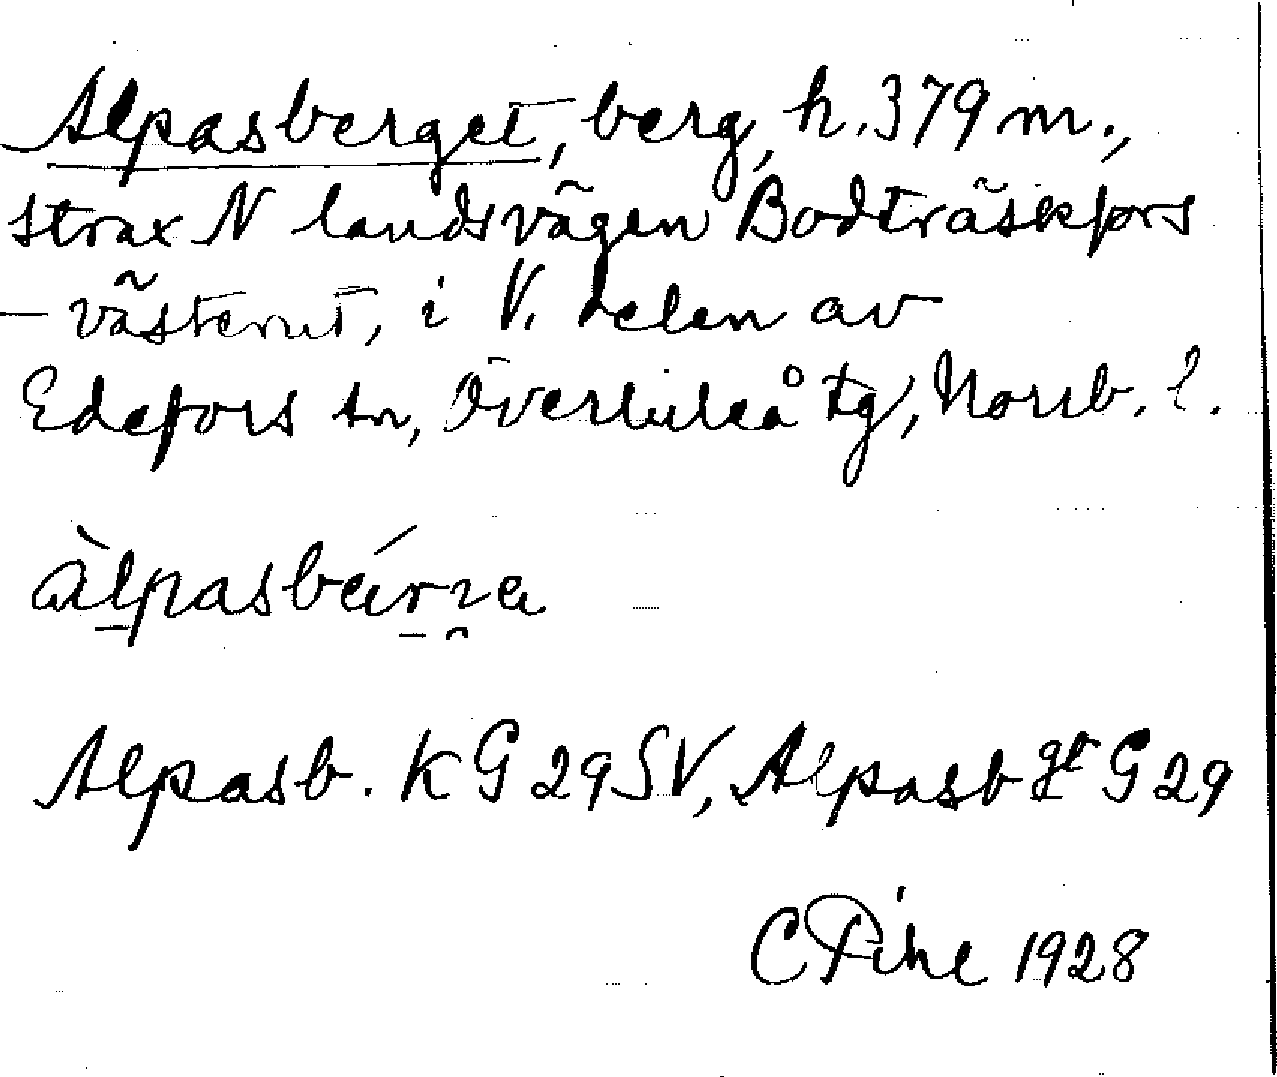 Alpasberget, berg, h. 379 m.,
strax N landsvägen Bodträskfors
– västerut, i V. delen av
Edefors sn, Överluleå tg, Norrb. l.
àlpasbárra
Alpasb. K G 29 SV, Alpasbgt G 29
C Pihl 1928